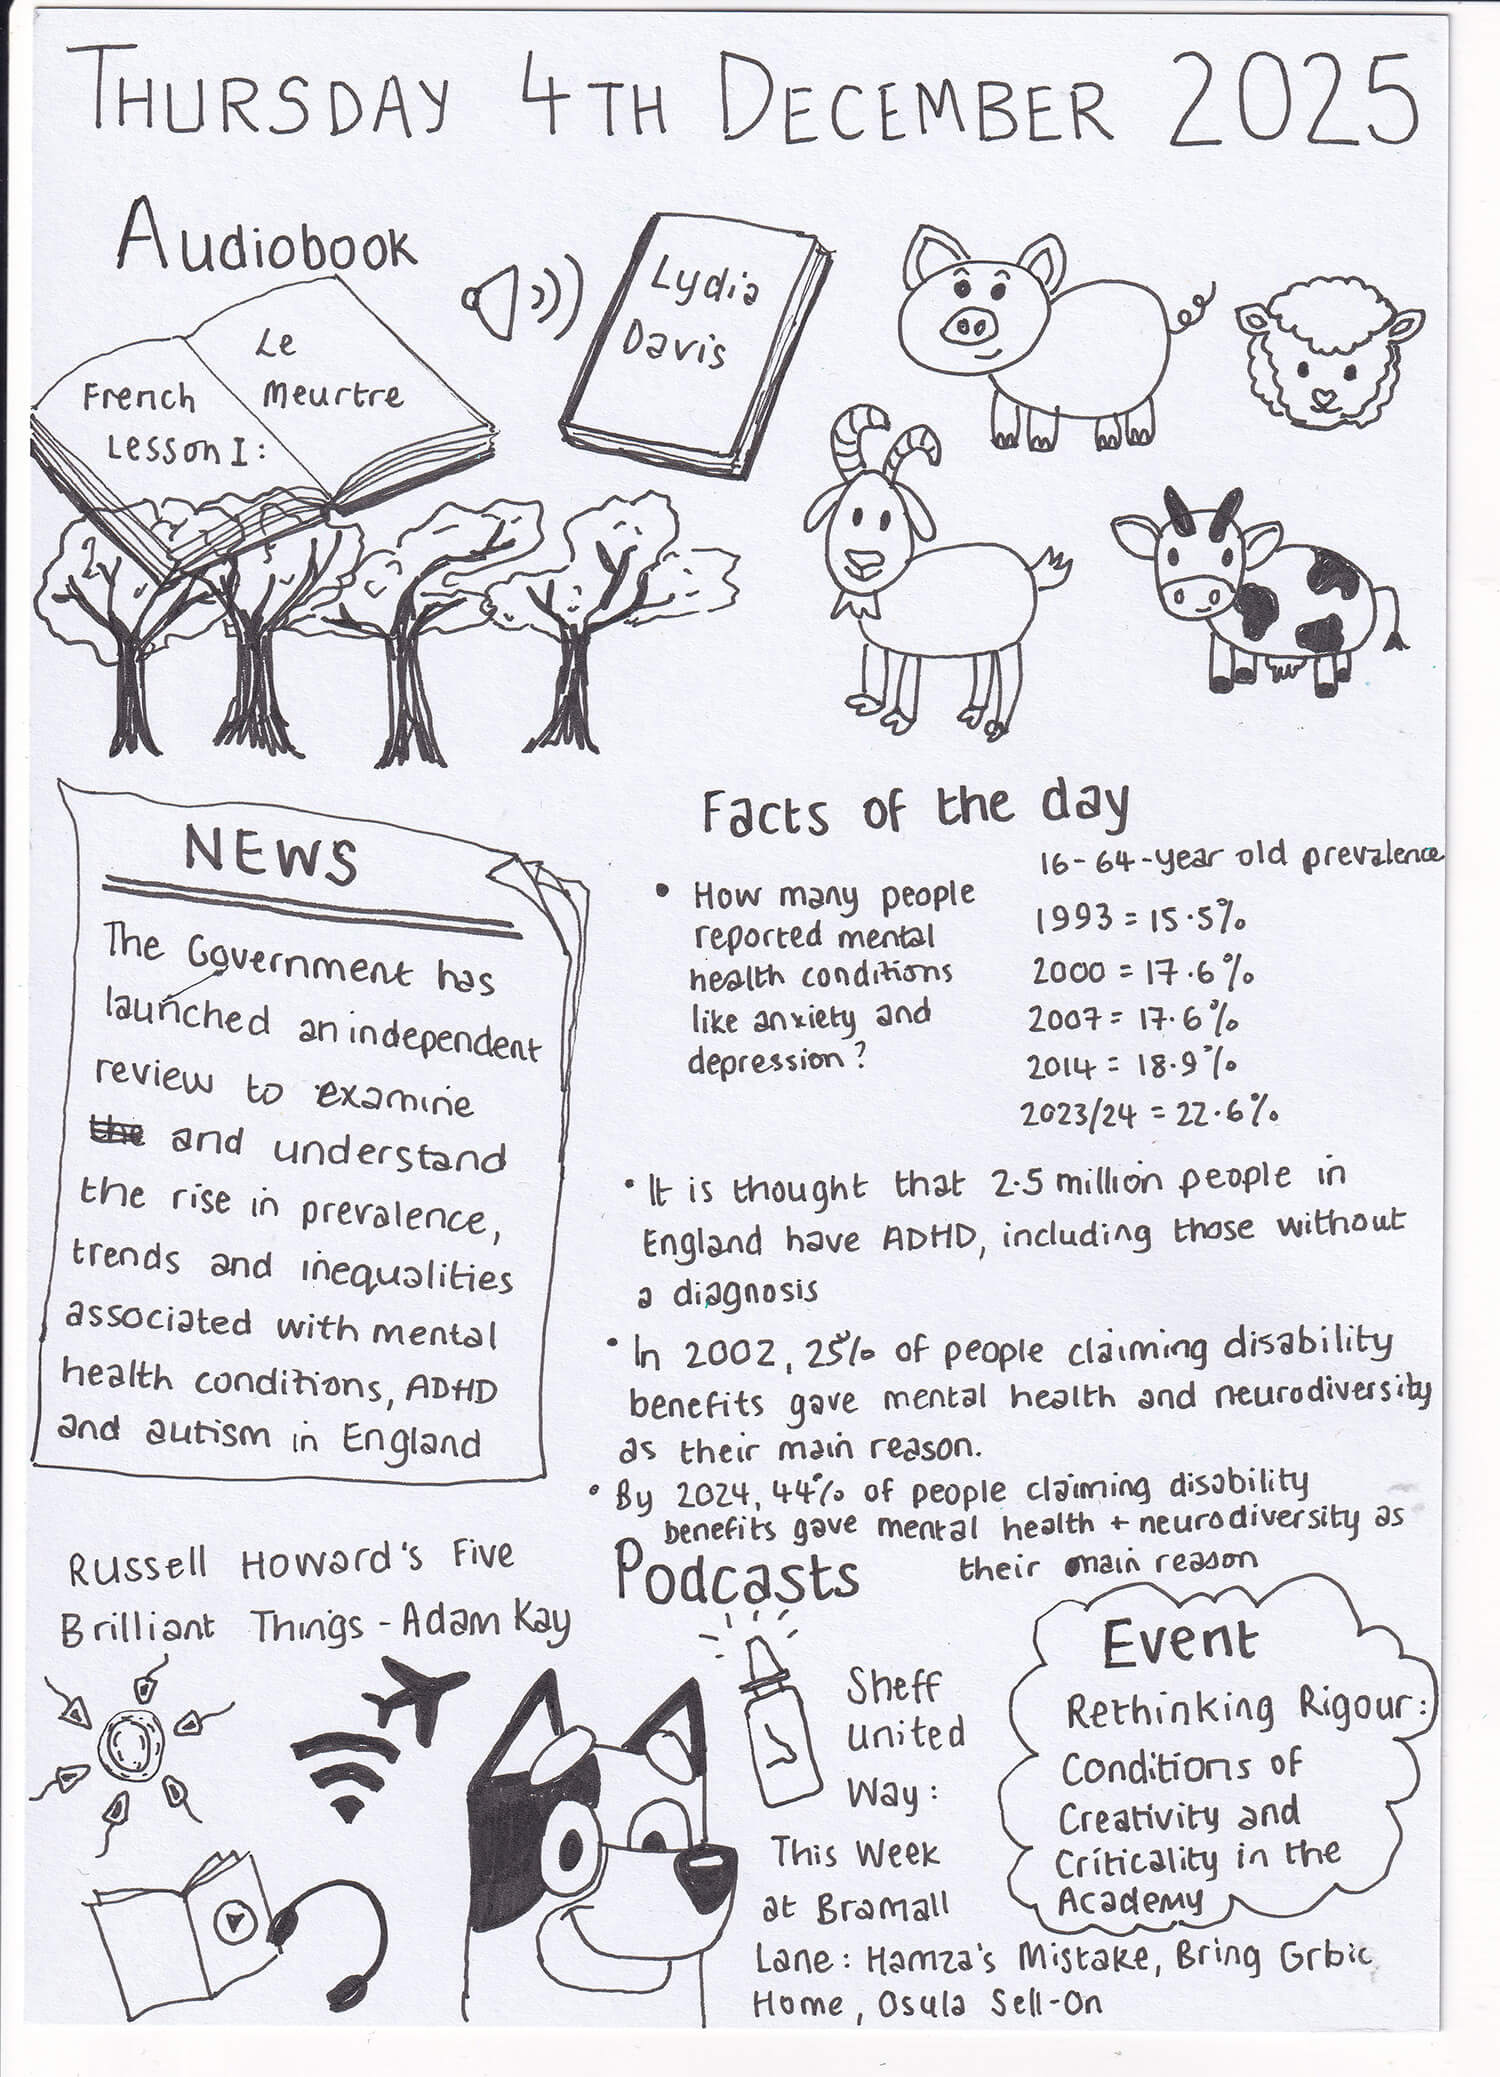 THURSDAY 4TH DECEMBER 2025
Audiobook
French
Lesson I:
Le
Meurtre
Lydia
Davis
NEWS
The Government has
launched an independent
review to examine
the and understand
the rise in prevalence,
trends and inequalities
associated with mental
health conditions, ADHD
and autism in England
Facts of the day
• How many people
reported mental
health conditions
like anxiety and
depression?
16-64-year old prevalence
1993 = 15.5%
2000 = 17.6%
2007 = 17.6%
2014 = 18.9%
2023/24 = 22.6%
• It is thought that 2.5 million people in
England have ADHD, including those without
a diagnosis
• In 2002, 25% of people claiming disability
benefits gave mental health and neurodiversity
as their main reason.
• By 2024, 44% of people claiming disability
benefits gave mental health + neurodiversity as
their main reason
Russell Howard's Five
Brilliant Things - Adam Kay
Podcasts
Sheff
United
Way:
This Week
at Bramall
Lane: Hamza's Mistake, Bring Grbic
Home, Osula Sell-On
Event
Rethinking Rigour:
Conditions of
Creativity and
Criticality in the
Academy